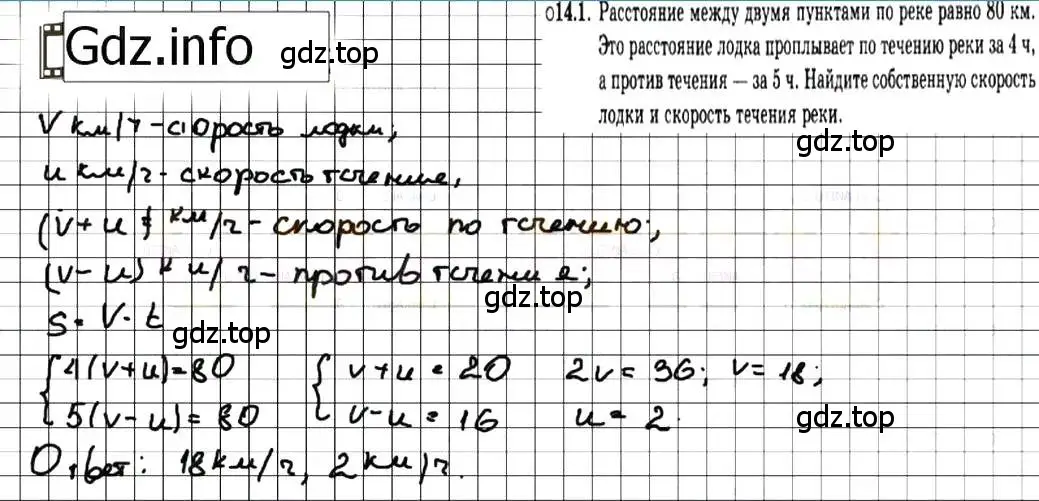 Gdz.info
gdz.top
O14.1. Расстояние между двумя пунктами по реке равно 80 км.
Это расстояние лодка проплывает по течению реки за 4 ч,
а против течения — за 5 ч. Найдите собственную скорость
лодки и скорость течения реки.
gdz.top
V км/ч - скорость лодки;
u км/ч - скорость течение,
gdz.top
(v+u) км/ч - скорость по течению;
(v-u) км/ч - против течение;
gdz.top
S = V · t
gdz.top
4(v+u)=80
v+u = 20
2v = 36; v = 18;
5(v-u)=80
v-u = 16
u = 2.
gdz.top
Ответ: 18 км/ч, 2 км/ч.